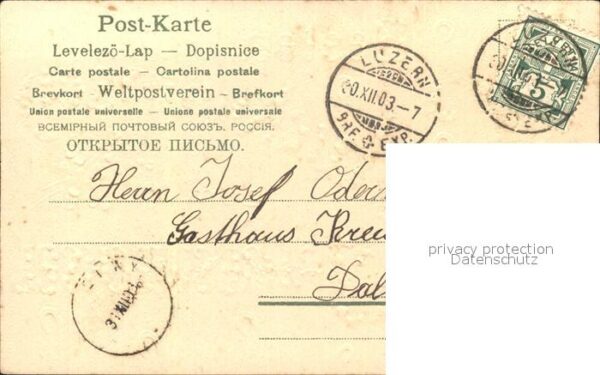 Post-Karte
Levelező-Lap — Dopisnice
Carte postale — Cartolina postale
Brevkort - Weltpostverein - Brefkort
Union postale universelle — Unione postale universale
ВСЕМІРНЫЙ ПОЧТОВЫЙ СОЮЗЪ. РОССІЯ.
ОТКРЫТОЕ ПИСЬМО.
LUZERN
30.XII.03.-7
BRF. EXP.
5
Herrn Josef Oder
Gasthaus
31.XII.03
privacy protection
Datenschutz